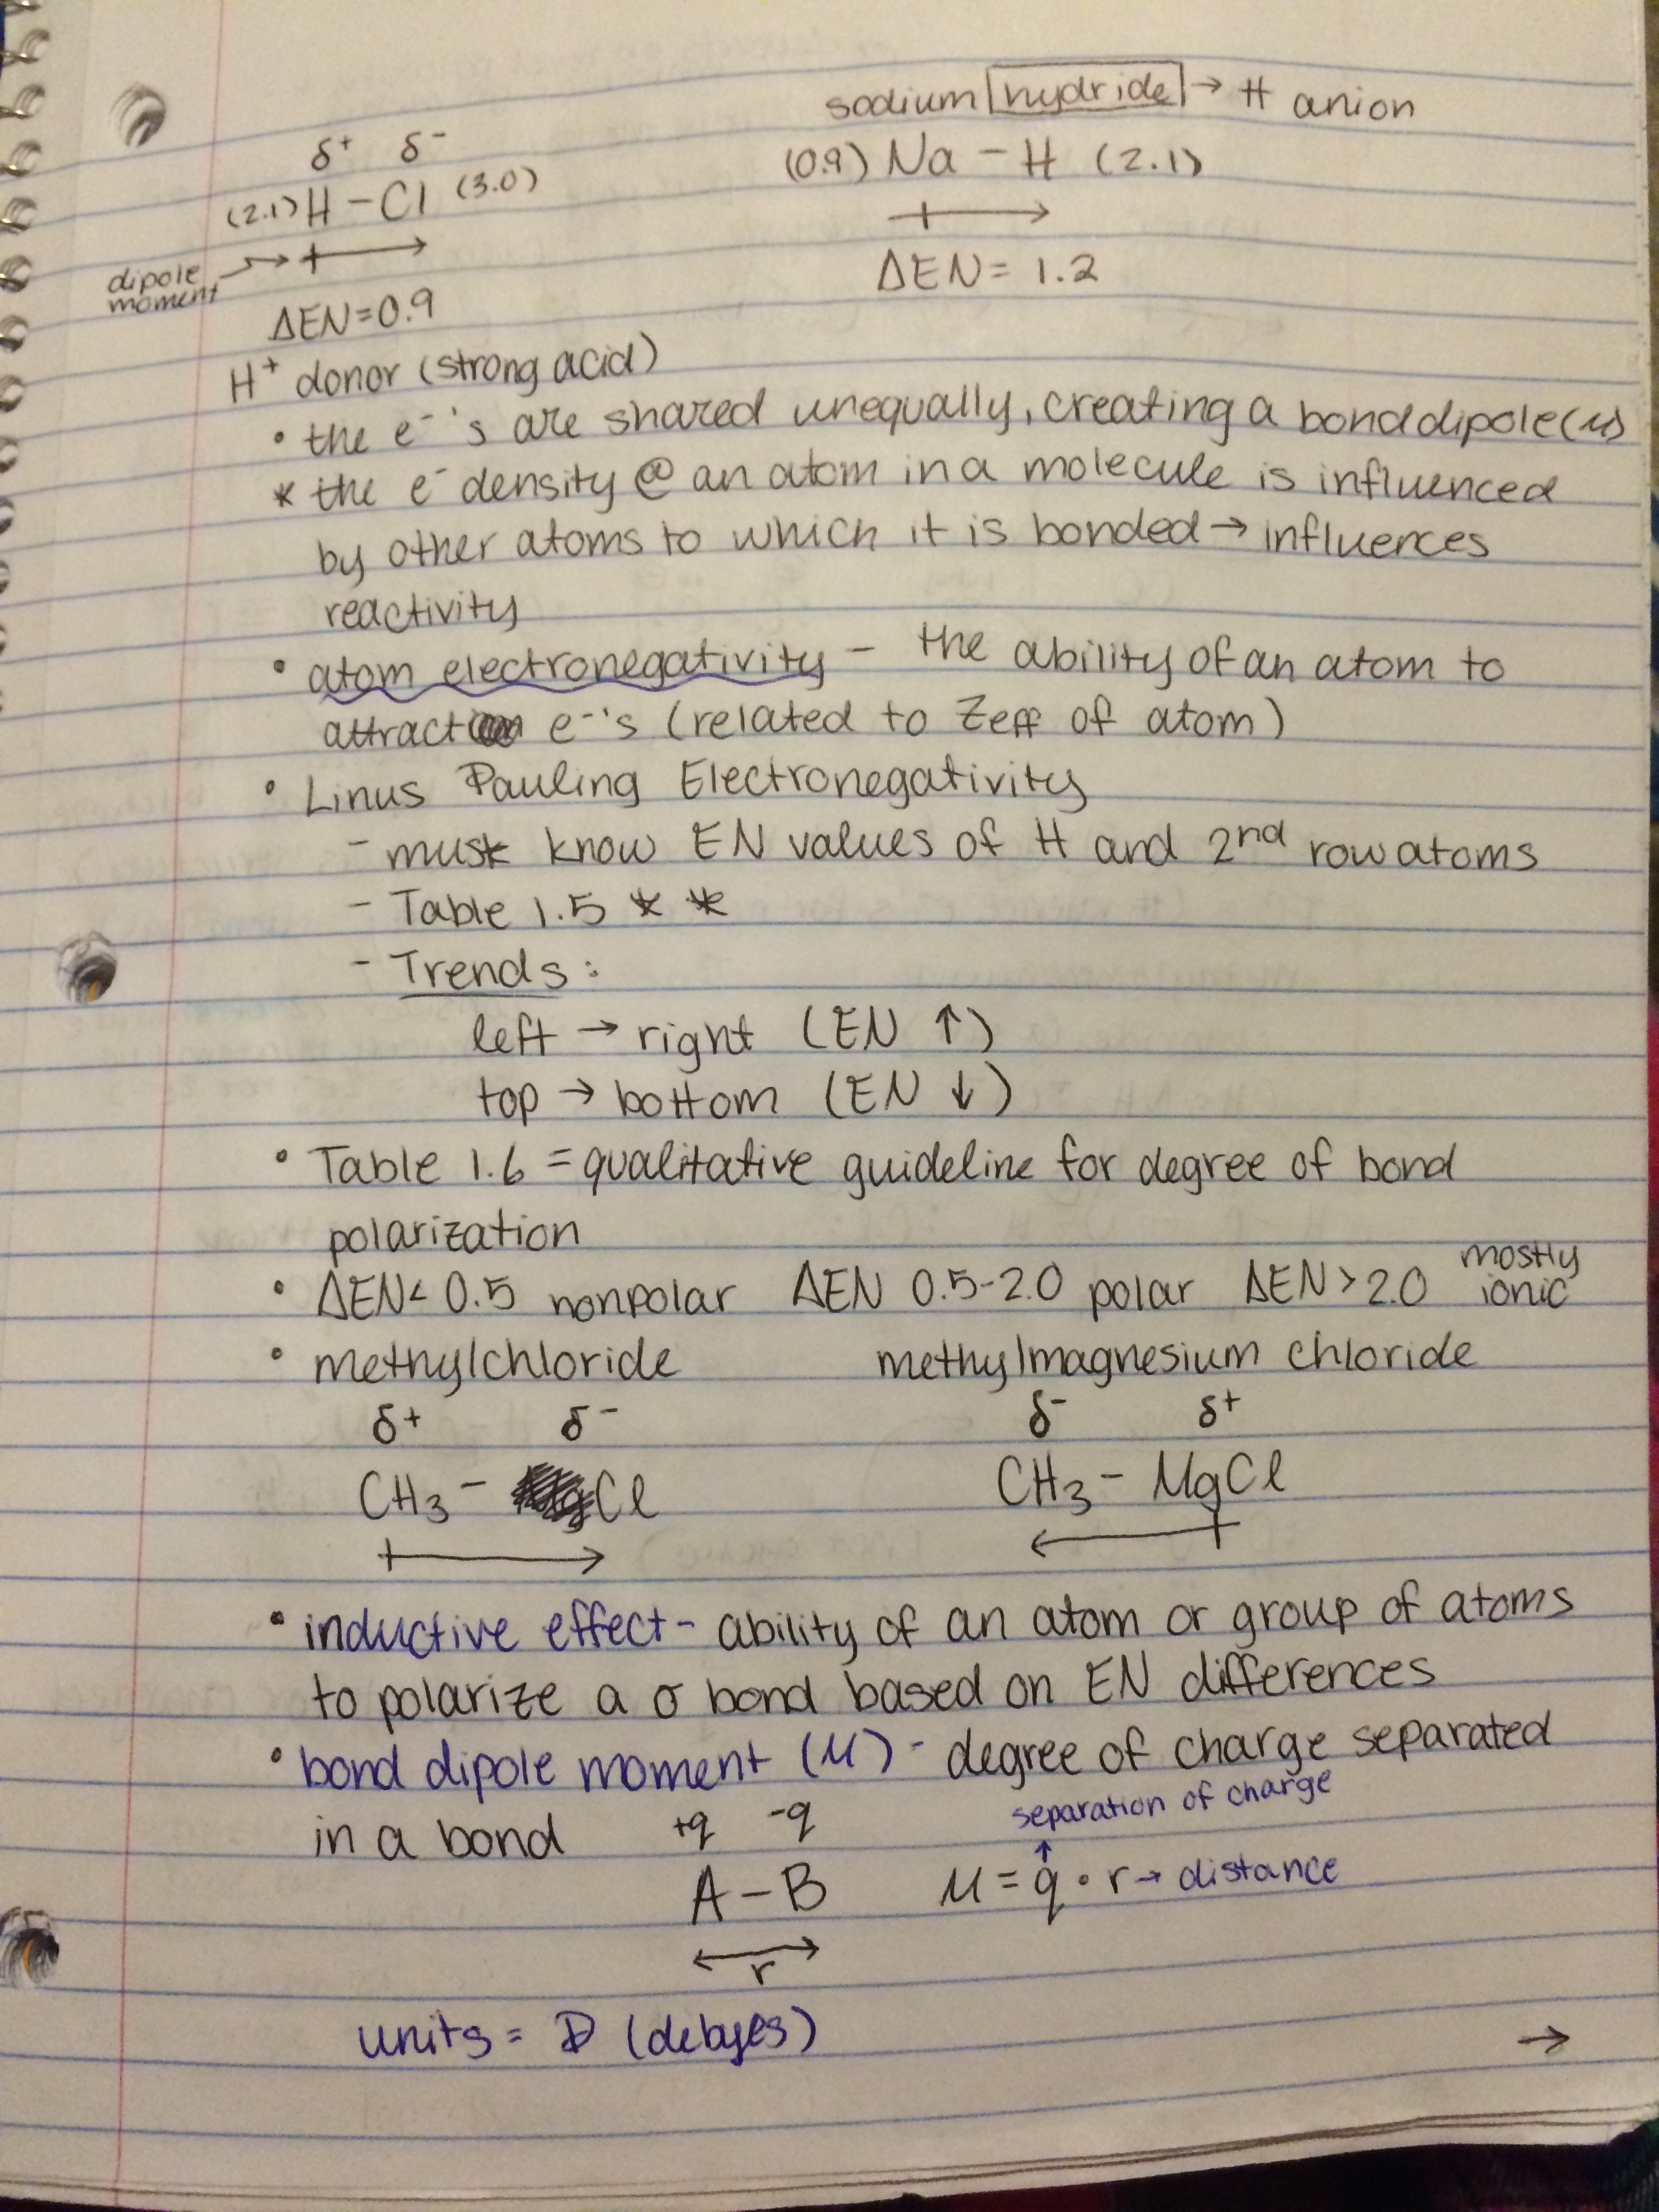 sodium hydride → H anion
δ+ δ-
(0.9) Na - H (2.1)
(2.1) H - Cl (3.0)
dipole moment
ΔEN = 1.2
ΔEN = 0.9
H+ donor (strong acid)
• the e-'s are shared unequally, creating a bond dipole (μ)
* the e- density @ an atom in a molecule is influenced
by other atoms to which it is bonded → influences
reactivity
• atom electronegativity - the ability of an atom to
attract e-'s (related to Zeff of atom)
• Linus Pauling Electronegativity
- must know EN values of H and 2nd row atoms
- Table 1.5 * *
- Trends:
left → right (EN ↑)
top → bottom (EN ↓)
• Table 1.6 = qualitative guideline for degree of bond
polarization
• ΔEN < 0.5 nonpolar ΔEN 0.5-2.0 polar ΔEN > 2.0 mostly ionic
• methylchloride methylmagnesium chloride
δ+ δ- δ- δ+
CH3 - Cl CH3 - MgCl
• inductive effect - ability of an atom or group of atoms
to polarize a σ bond based on EN differences
• bond dipole moment (μ) - degree of charge separated
separation of charge
in a bond +q -q
A - B μ = q • r → distance
r
units = D (debyes)
→